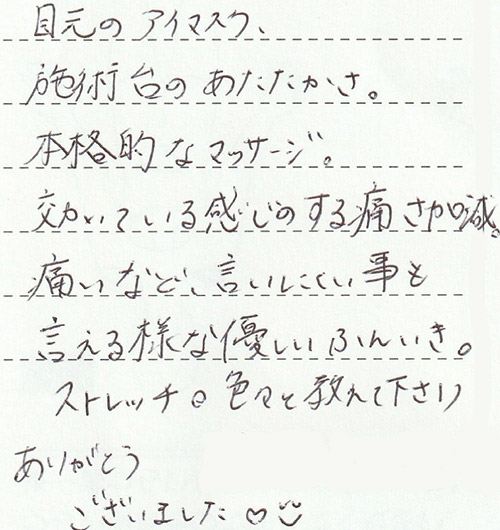 目元のアイマスク、
施術台のあたたかさ。
本格的なマッサージ。
効いている感じのする痛さ加減。
痛いなど、言いにくい事も
言える様な優しいふんいき。
ストレッチも色々と教えて下さり
ありがとう
ございました♡